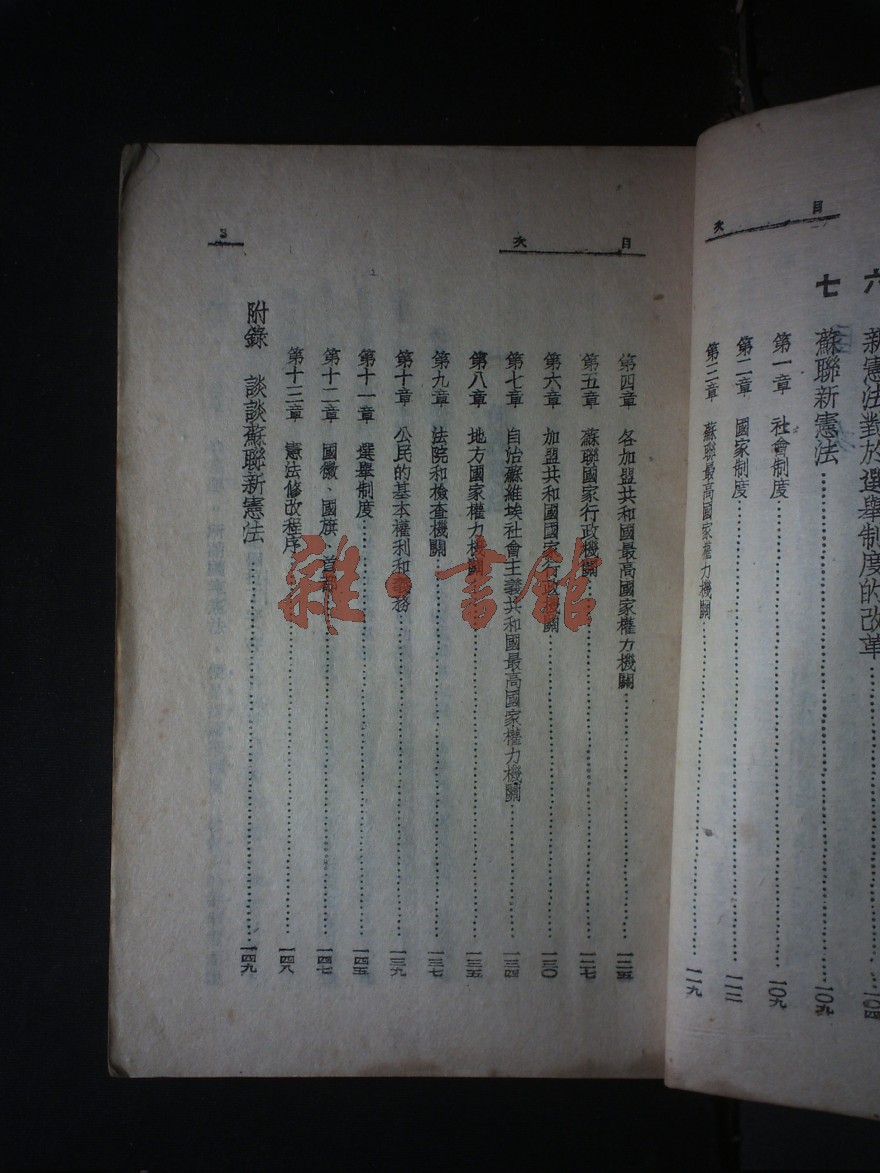 目 次
六 新憲法對於選舉制度的改革……一〇四
七 蘇聯新憲法……一〇九
第一章 社會制度……一〇九
第二章 國家制度……一一二
第三章 蘇聯最高國家權力機關……一一九
目 次 3
第四章 各加盟共和國最高國家權力機關……一二五
第五章 蘇聯國家行政機關……一二七
第六章 加盟共和國國家行政機關……一三〇
第七章 自治蘇維埃社會主義共和國最高國家權力機關……一三四
第八章 地方國家權力機關……一三五
第九章 法院和檢查機關……一三七
第十章 公民的基本權利和義務……一三九
第十一章 選舉制度……一四五
第十二章 國徽、國旗、首都……一四七
第十三章 憲法修改程序……一四八
附錄 談談蘇聯新憲法……一四九
雜·書館